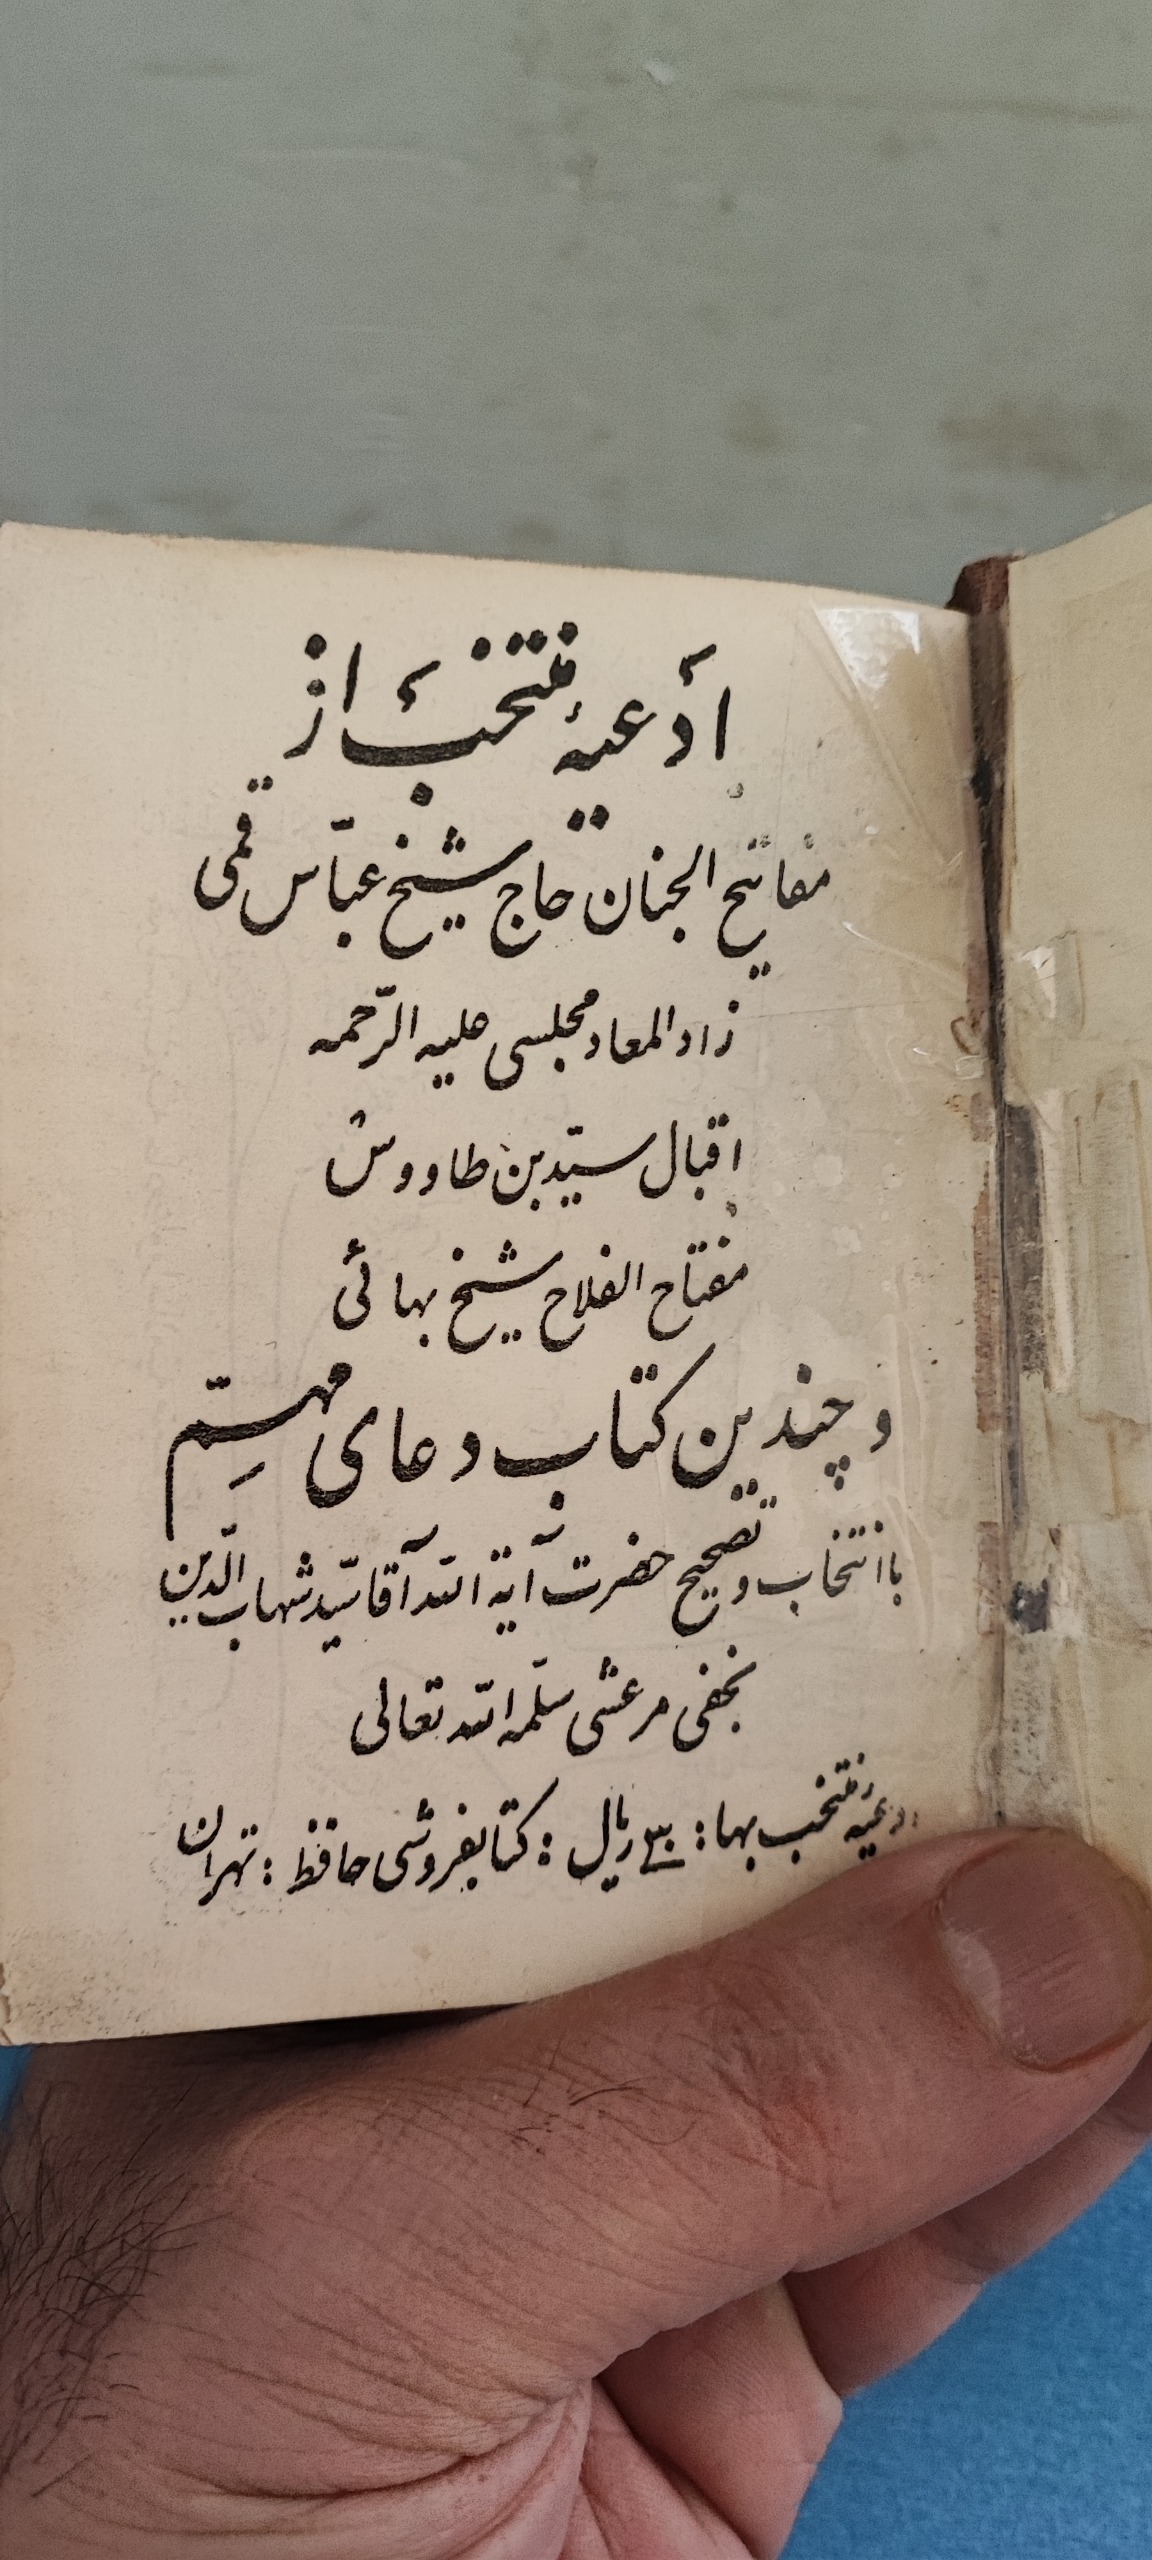 ادعیهٔ منتخبهٔ از
مفاتیح الجنان حاج شیخ عبّاس قمی
زاد المعاد مجلسی علیه الرّحمه
اقبال سیّد بن طاووس
مفتاح الفلاح شیخ بهائی
و چندین کتاب دعای مهمّ
با انتخاب و تصحیح حضرت آیة اللّه آقا سیّد شهاب الدّین
نجفی مرعشی سلّمه اللّه تعالی
ادعیهٔ منتخب بها: ۳۰ ریال : کتابفروشی حافظ : تهران